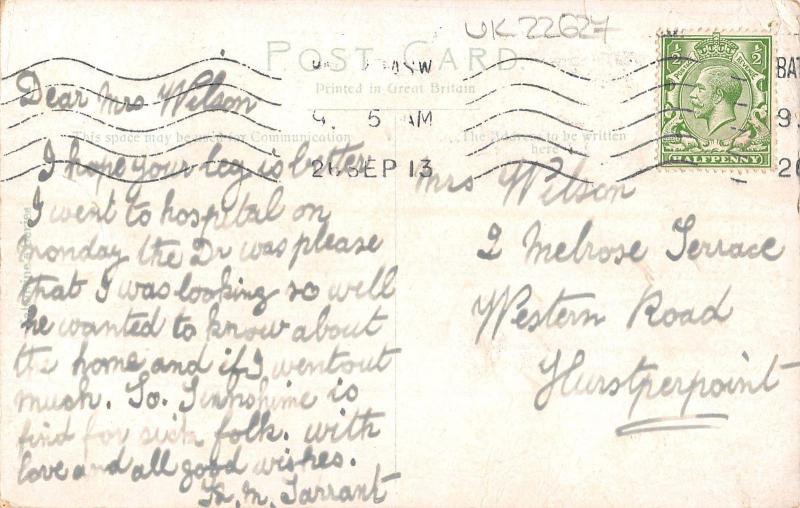 UK 22627
POST CARD
Printed in Great Britain
This space may be used for Communication
The Address to be written
here
9. 5 AM
26 SEP 13
BAT
9.
26
½ ½
HALFPENNY
Dear Mrs Wilson
I hope your leg is better
I went to hospital on
monday the Dr was please
that I was looking so well
he wanted to know about
the home and if I went out
much. So. Sunshine is
find for sick folk. with
love and all good wishes.
M. Tarrant
Mrs Wilson
2 Melrose Terrace
Western Road
Hurstperpoint